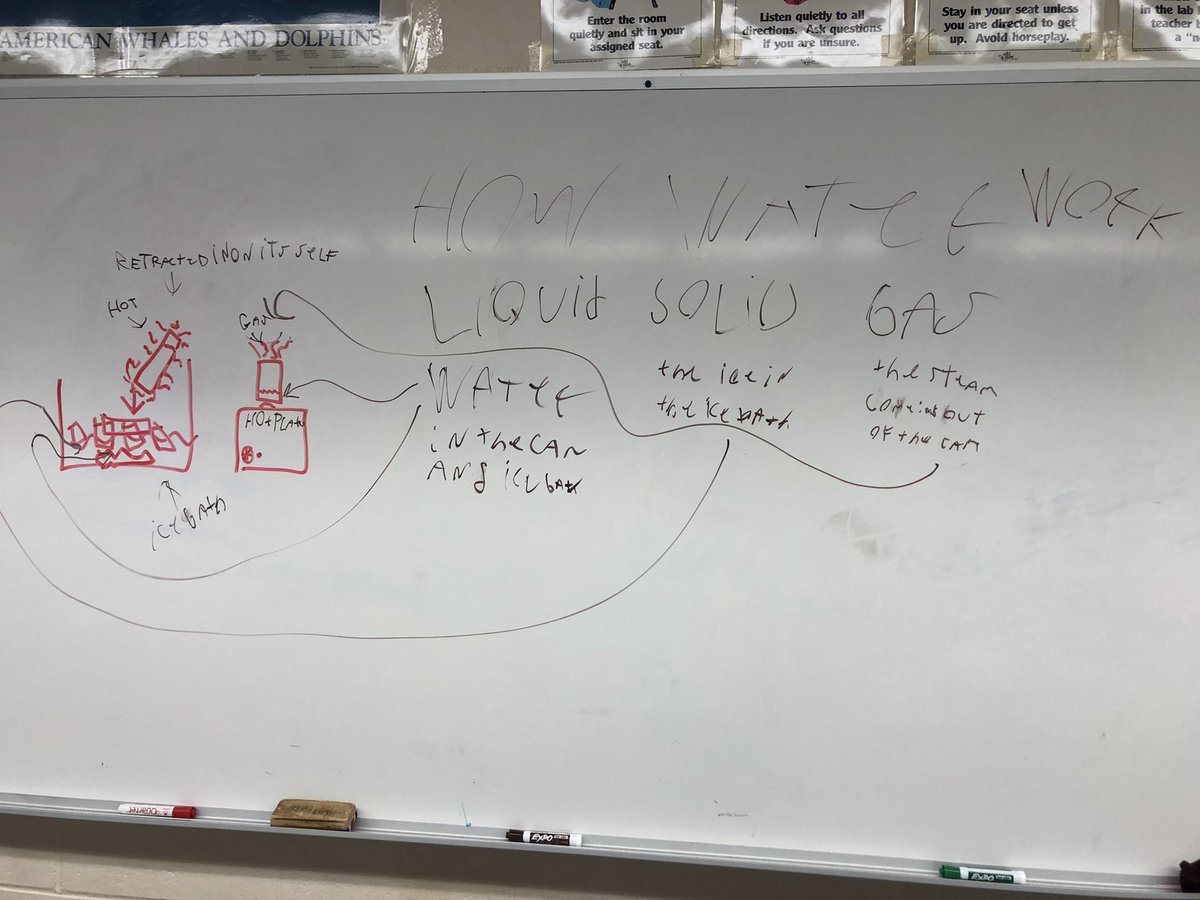 AMERICAN WHALES AND DOLPHINS
Enter the room
quietly and sit in your
assigned seat.
Listen quietly to all
directions. Ask questions
if you are unsure.
Stay in your seat unless
you are directed to get
up. Avoid horseplay.
in the lab
teacher
a "n
HOW WATEE WORK
LIQUID SOLID GAS
RETRACTED INON ITS SELF
HOT
GAS
HOt PLAte
ice bAth
WATEE
iN the CAN
ANd ice bAth
the ice in
the ice bAth
the STEAM
coming out
of the CAN
Quartet
EXPO
EXPO